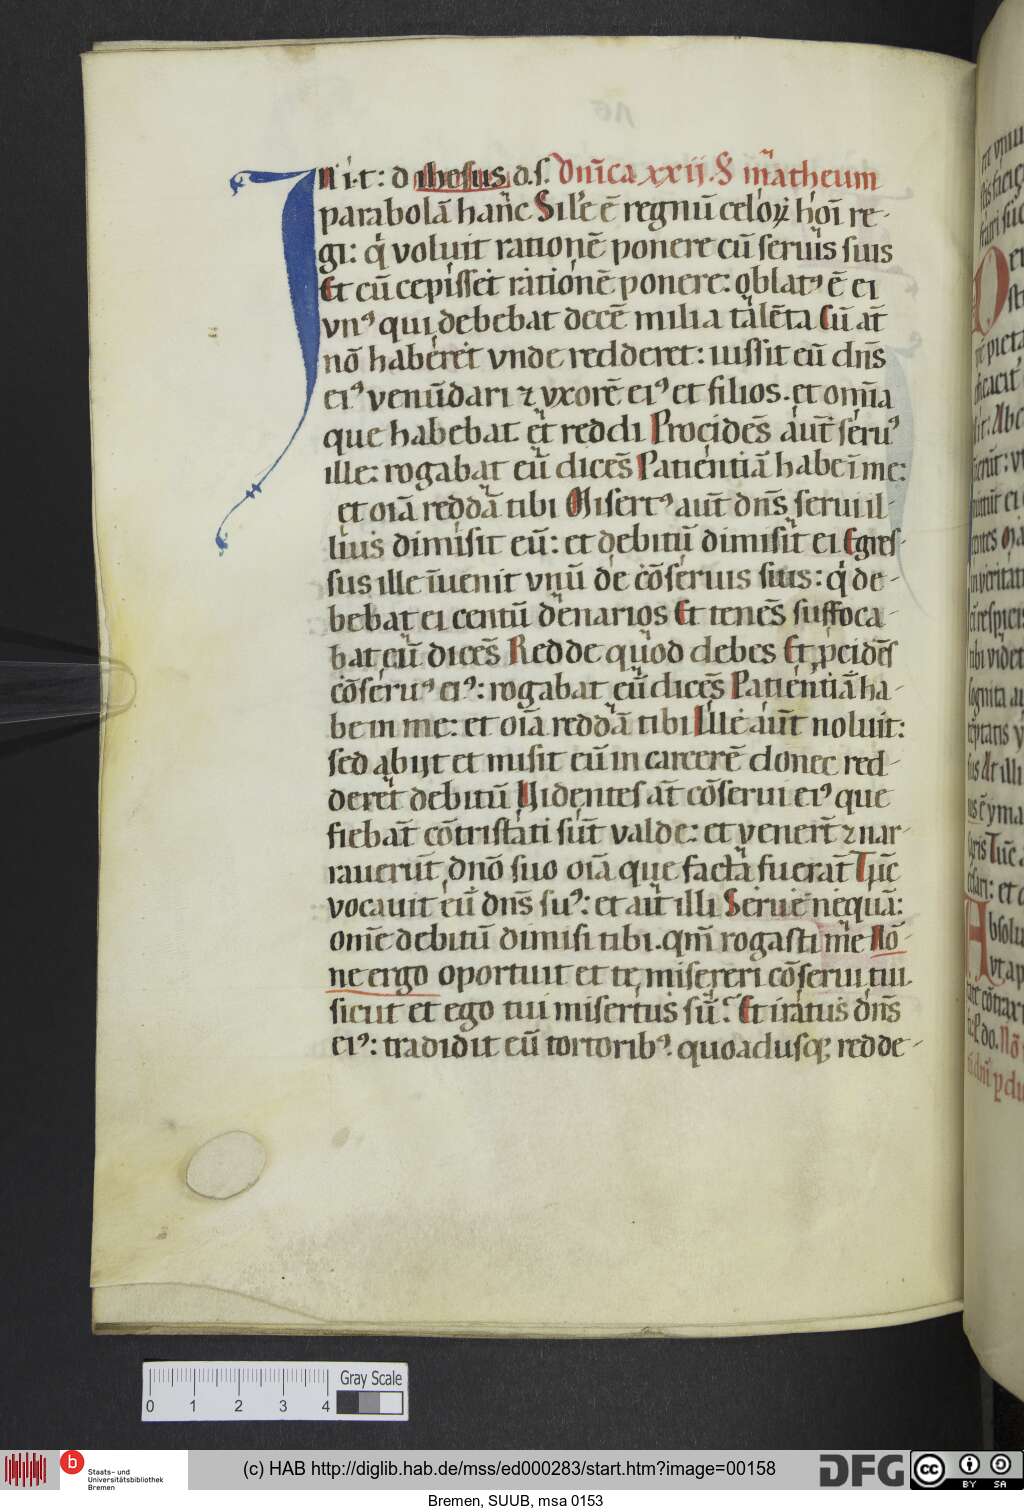 IN i·t: d ihesus d.s. Dnīca xxij. S̄ matheum
parabolā hanc Sile ē regnū celoꝝ hoī re-
gi: q̇ voluit rationē ponere cū seruis suis
Et cū cepisset rationē ponere: oblatꝰ ē ei
vnꝰ qui debebat decē milia talēta Cū at̄
nō haberet vnde redderet: iussit eū dn̄s
eiꝰ venūdari ⁊ vxorē eiꝰ et filios. et om̄ia
que habebat et reddi Procidēs aut̄ seruꝰ
ille: rogabat eū dicēs Patientiā habe ī me:
et oīa reddā tibi Misertꝰ aut̄ dn̄s serui il-
lius dimisit eū: et debitū dimisit ei Egres-
sus ille īuenit vnū de cōseruis suis: q̇ de-
bebat ei centū denarios Et tenēs suffoca-
bat eū dicēs Redde quod debes Et ꝓcidēs
cōseruꝰ eiꝰ: rogabat eū dicēs Patientiā ha-
be in me: et oīa reddā tibi Ille aut̄ noluit:
sed abijt et misit eū in carcerē donec red-
deret debitū Videntes at̄ cōserui eiꝰ que
fiebāt cōtristati sūt valde: et venerūt ⁊ nar-
rauerūt dnō suo oīa que facta fuerāt Tūc
vocauit eū dn̄s suꝰ: et ait illi Serue nequā:
om̄e debitū dimisi tibi. qm̄ rogasti me Nō-
ne ergo oportuit et te misereri cōserui tui
sicut et ego tui misertus sū? Et iratus dn̄s
eiꝰ: tradidit eū tortoribꝰ quoadusqꝫ redde-
0 1 2 3 4 Gray Scale
b Staats- und
Universitätsbibliothek
Bremen
(c) HAB http://diglib.hab.de/mss/ed000283/start.htm?image=00158
DFG
cc BY SA
Bremen, SUUB, msa 0153